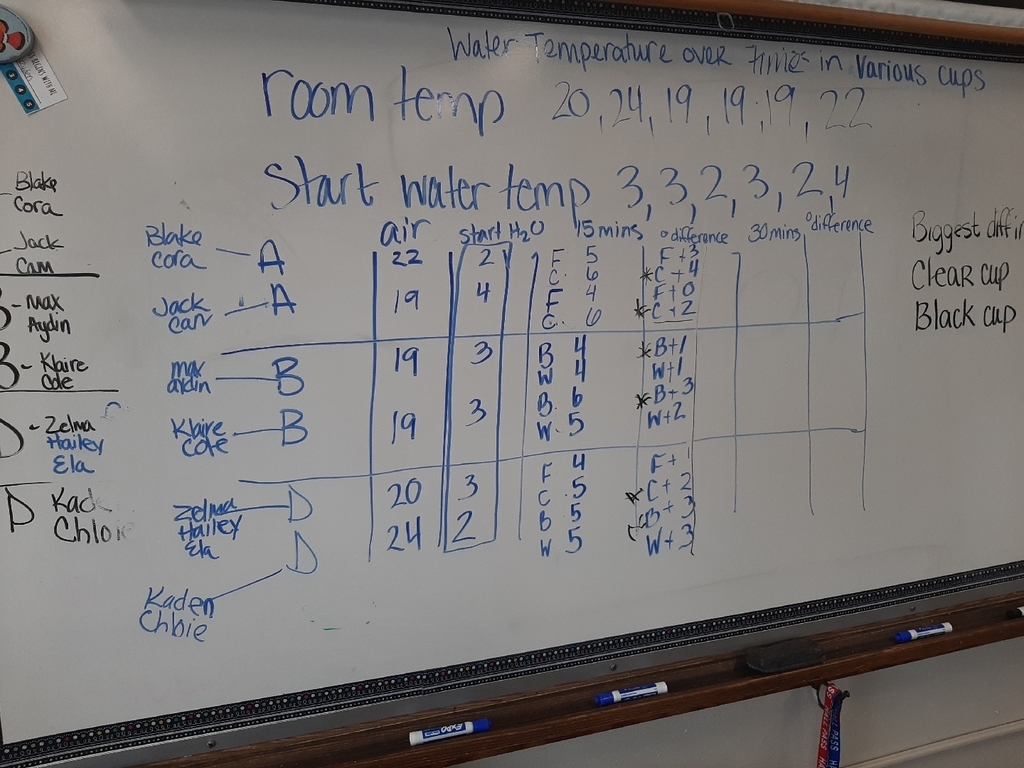 Water Temperature over time in Various cups
room temp 20, 24, 19, 19, 19, 22
Start water temp 3, 3, 2, 3, 2, 4
air start H2O 15 mins °difference 30 mins °difference
Blake
Cora
Jack
Cam
B - Max
Aydin
B - Klaire
Cole
D - Zelma
Hailey
Ela
D Kade
Chloie
Blake
Cora A 22 2 F 5 F+3
C. 6 *C+4
Jack
Cam A 19 4 F 4 F+0
C. 6 *C+2
max
aydin B 19 3 B 4 *B+1
W 4 W+1
Klaire
Cole B 19 3 B. 6 *B+3
W. 5 W+2
Zelma
Hailey
Ela D 20 3 F 4 F+1
C .5 *C+2
D 24 2 B .5 B+3
W 5 W+3
Kaden
Chloie
Biggest diffir
Clear cup
Black cup
EXPO